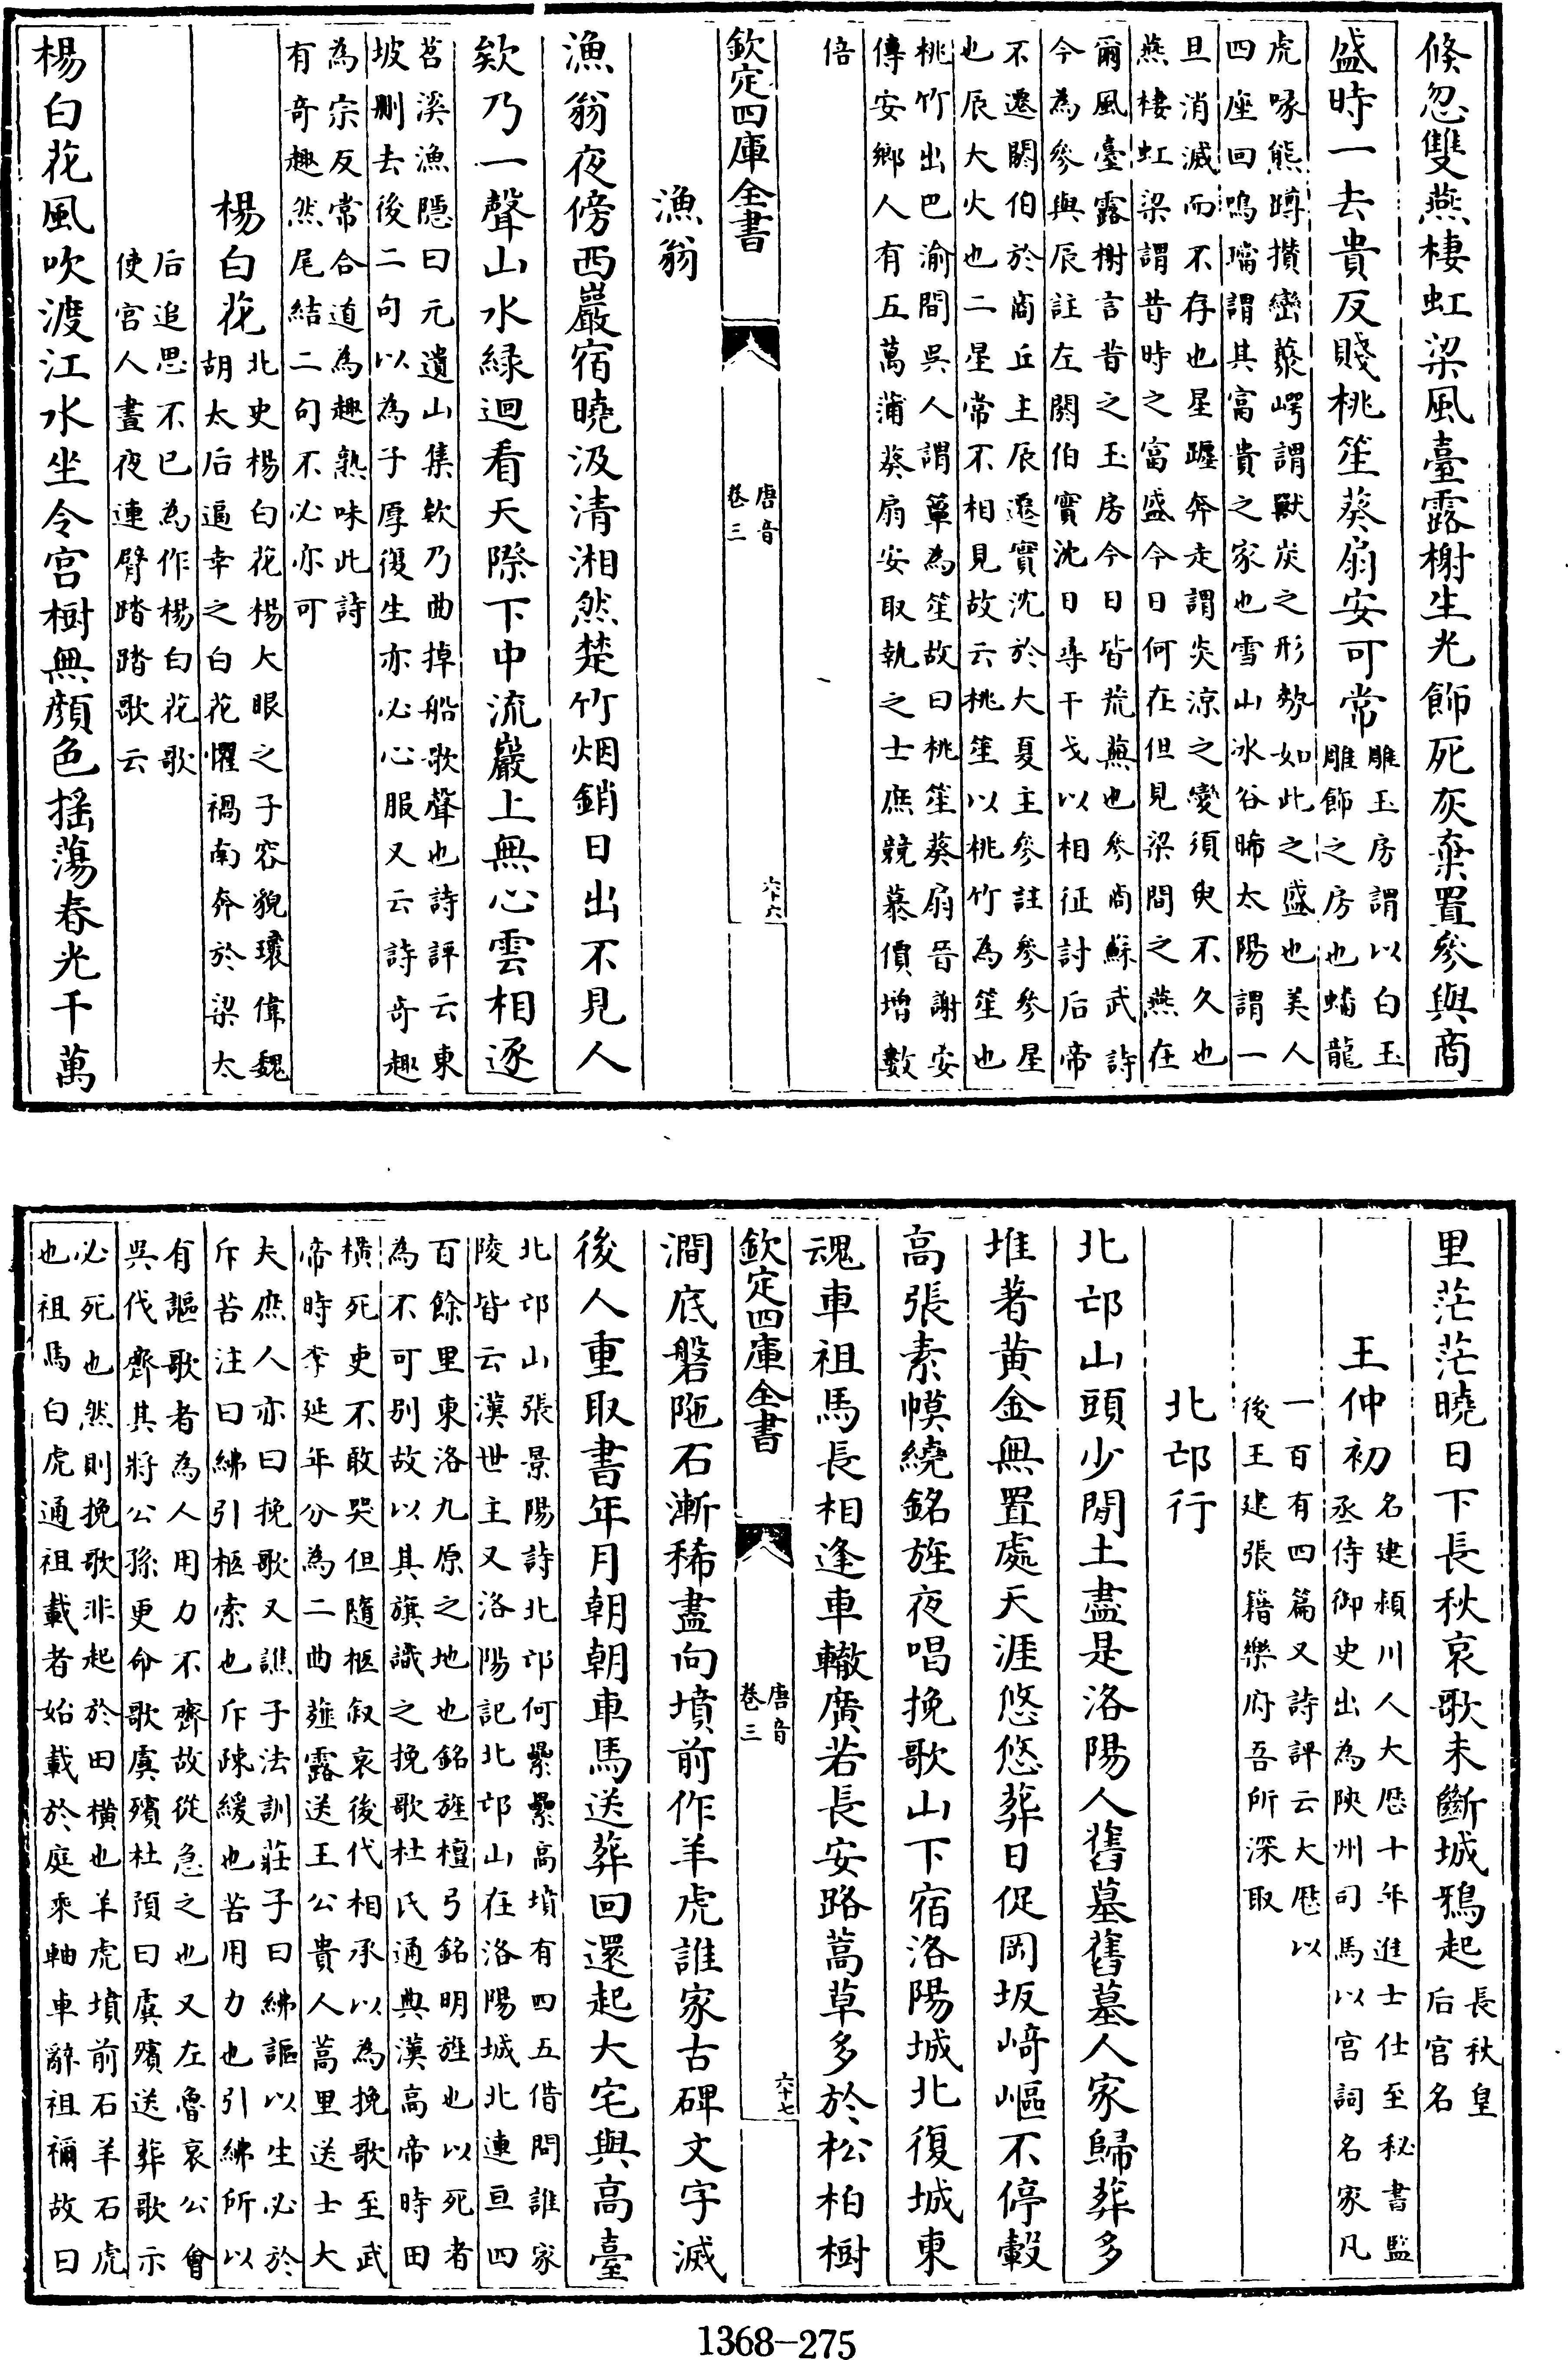 倐忽雙燕棲虹梁風臺露榭生光飾死灰棄置參與商
盛時一去貴反賤桃笙葵扇安可常
雕玉房謂以白玉
雕飾之房也蟠龍
虎啄熊蹲攢巒藂崿謂獸炭之形勢如此之盛也美人
四座回鳴璫謂其富貴之家也雪山冰谷晞太陽謂一
旦消滅而不存也星躔奔走謂炎涼之變須臾不久也
燕棲虹梁謂昔時之富盛今日何在但見梁間之燕在
爾風臺露榭言昔之玉房今日皆荒蕪也參商蘇武詩
今為參與辰註左閼伯實沈日尋干戈以相征討后帝
不遷閼伯於商丘主辰遷實沈於大夏主參註參參星
也辰大火也二星常不相見故云桃笙以桃竹為笙也
桃竹出巴渝間吳人謂簟為笙故曰桃笙葵扇晉謝安
傳安鄉人有五萬蒲葵扇安取執之士庶競慕價增數
倍
欽定四庫全書
唐音
卷三
六十六
漁翁
漁翁夜傍西巖宿曉汲清湘然楚竹烟銷日出不見人
欸乃一聲山水緑迴看天際下中流巖上無心雲相逐
苕溪漁隱曰元遺山集欸乃曲掉船歌聲也詩評云東
坡删去後二句以為子厚復生亦必心服又云詩奇趣
為宗反常合道為趣熟味此詩
有奇趣然尾結二句不必亦可
楊白花
北史楊白花楊大眼之子容貌瓌偉魏
胡太后逼幸之白花懼禍南奔於梁太
后追思不已為作楊白花歌
使宫人晝夜連臂踏踏歌云
楊白花風吹渡江水坐令宫樹無顔色摇蕩春光千萬
里茫茫曉日下長秋哀歌未斷城鴉起
長秋皇
后宫名
王仲初
名建頴川人大厯十年進士仕至秘書監
丞侍御史出為陜州司馬以宫詞名家凡
一百有四篇又詩評云大厯以
後王建張籍樂府吾所深取
北邙行
北邙山頭少閒土盡是洛陽人舊墓舊墓人家歸葬多
堆著黄金無置處天涯悠悠葬日促岡坂﨑嶇不停轂
高張素幙繞銘旌夜唱挽歌山下宿洛陽城北復城東
魂車祖馬長相逢車轍廣若長安路蒿草多於松柏樹
欽定四庫全書
唐音
卷三
六十七
澗底磐陁石漸稀盡向墳前作羊虎誰家古碑文字滅
後人重取書年月朝朝車馬送葬回還起大宅與高臺
北邙山張景陽詩北邙何纍纍高墳有四五借問誰家
陵皆云漢世主又洛陽記北邙山在洛陽城北連亘四
百餘里東洛九原之地也銘旌檀弓銘明旌也以死者
為不可别故以其旗識之挽歌杜氏通典漢高帝時田
橫死吏不敢哭但隨柩叙哀後代相承以為挽歌至武
帝時李延年分為二曲薤露送王公貴人蒿里送士大
夫庶人亦曰挽歌又譙子法訓莊子曰紼謳以生必於
斥苦注曰紼引柩索也斥疎緩也苦用力也引紼所以
有謳歌者為人用力不齊故從急之也又左魯哀公會
吳伐齊其將公孫更命歌虞殯杜預曰虞殯送葬歌示
必死也然則挽歌非起於田橫也羊虎墳前石羊石虎
也祖馬白虎通祖載者始載於庭乘軸車辭祖禰故曰
1368-275